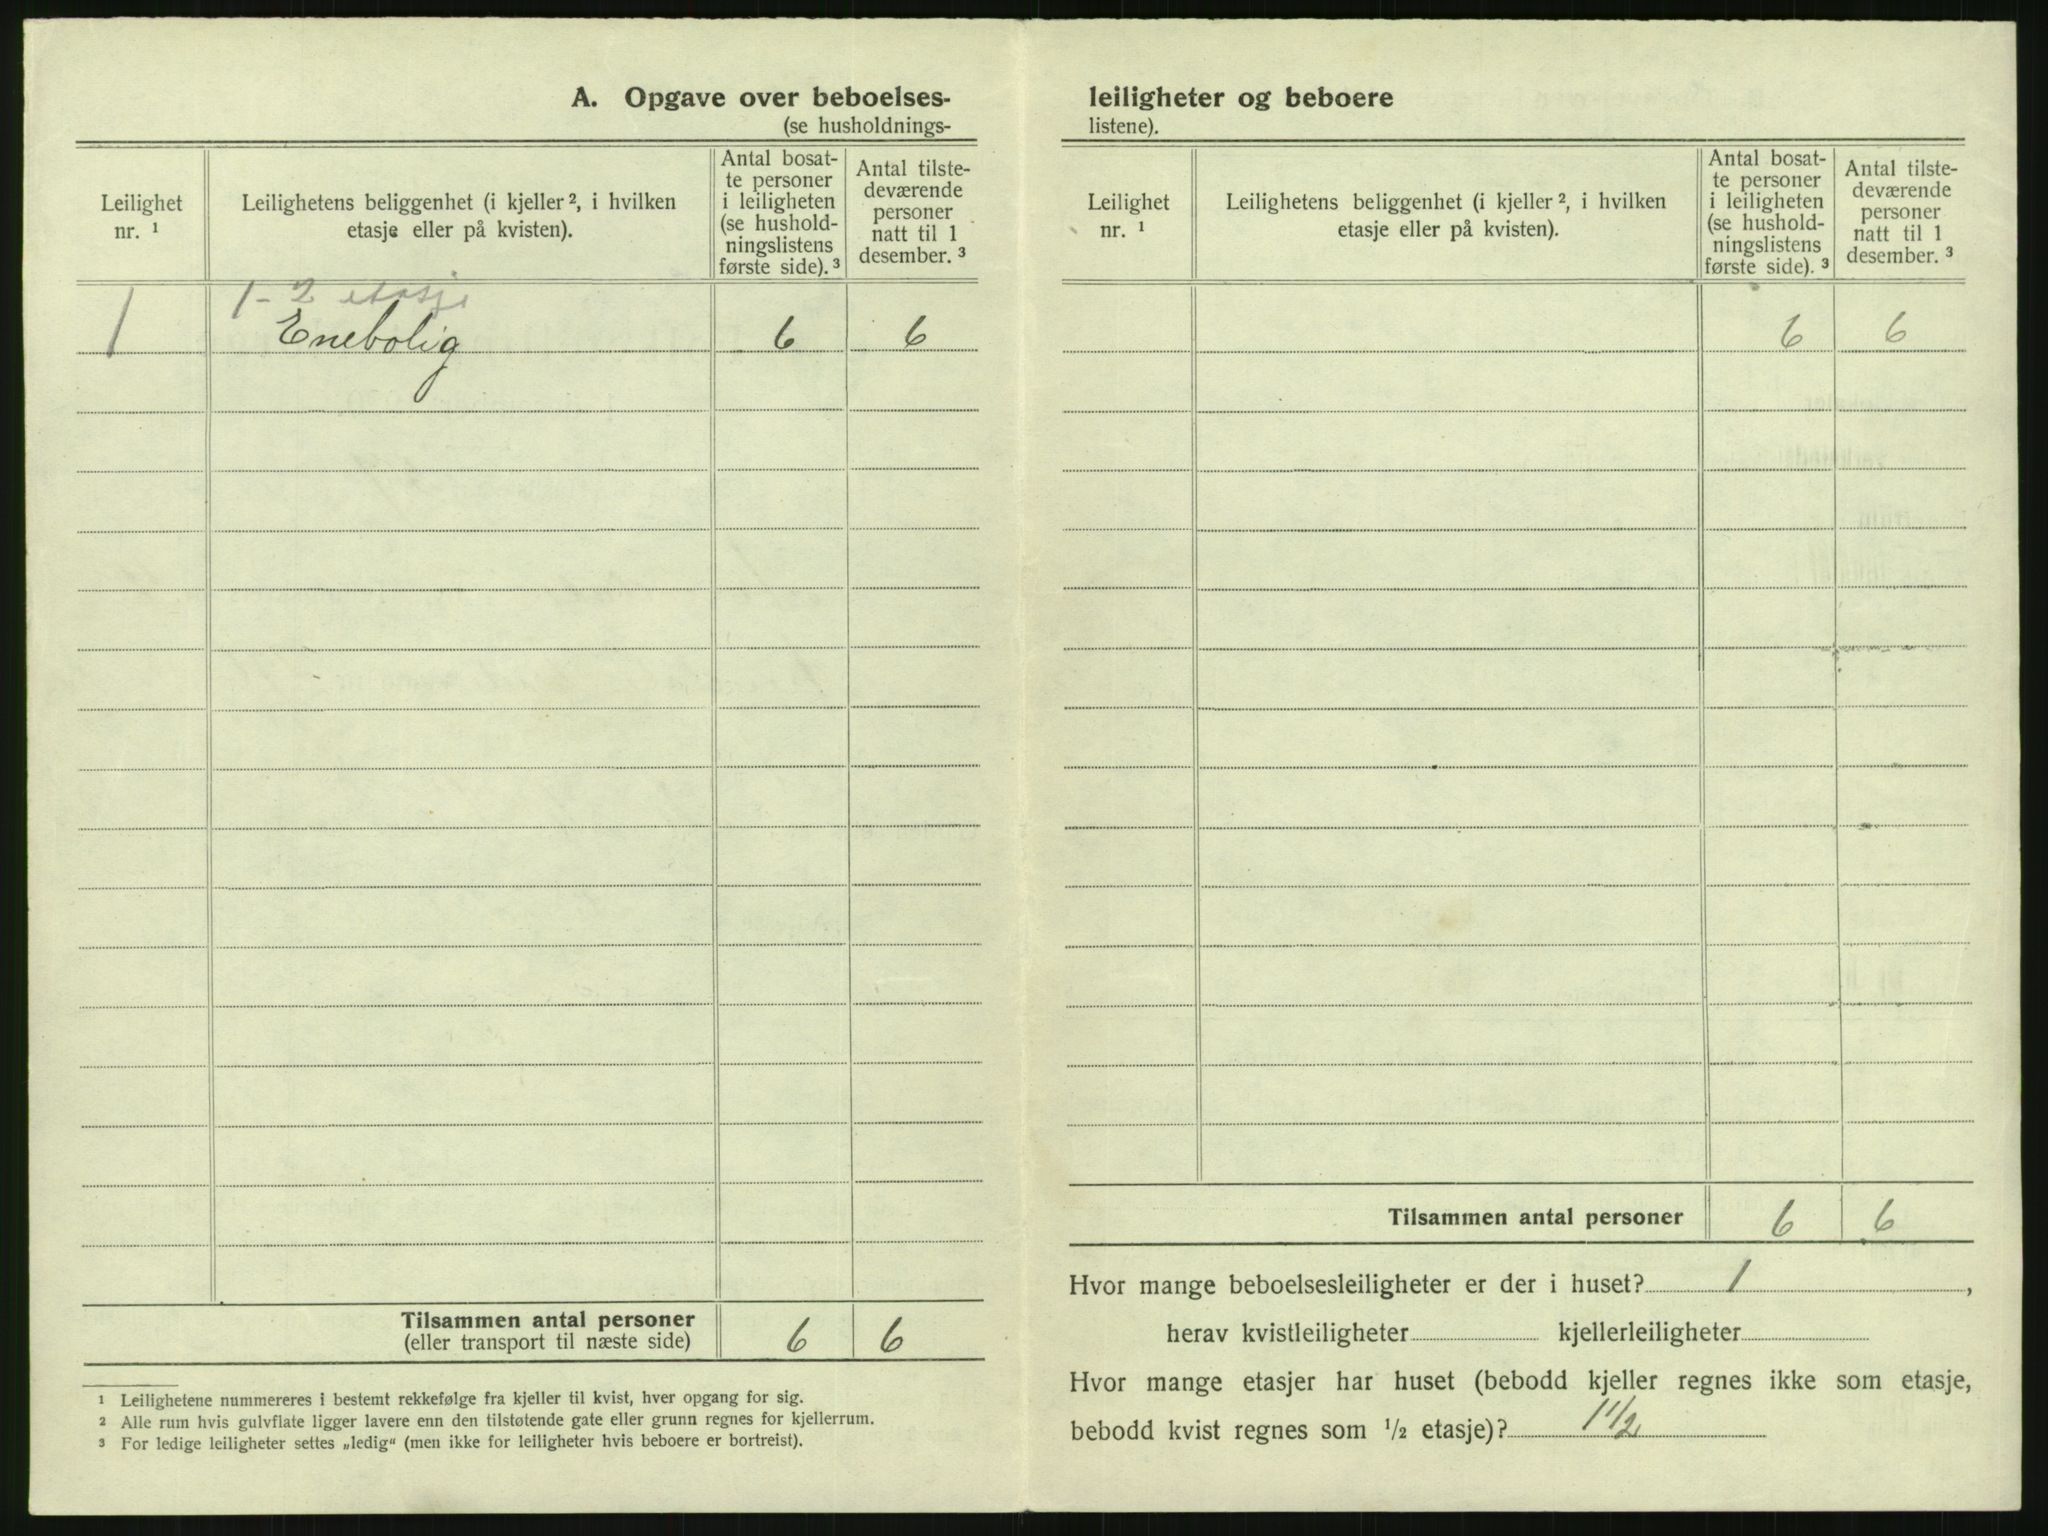 A. Opgave over beboelses-
(se husholdnings-
Leilighet
nr. ¹
Leilighetens beliggenhet (i kjeller ², i hvilken
etasje eller på kvisten).
Antal bosat-
te personer
i leiligheten
(se hushold-
ningslistens
første side). ³
Antal tilste-
deværende
personer
natt til 1
desember. ³
1-2 etasje
1 Enebolig 6 6
Tilsammen antal personer
(eller transport til næste side) 6 6
¹ Leilighetene nummereres i bestemt rekkefølge fra kjeller til kvist, hver opgang for sig.
² Alle rum hvis gulvflate ligger lavere enn den tilstøtende gate eller grunn regnes for kjellerrum.
³ For ledige leiligheter settes „ledig“ (men ikke for leiligheter hvis beboere er bortreist).
leiligheter og beboere
listene).
Leilighet
nr. ¹
Leilighetens beliggenhet (i kjeller ², i hvilken
etasje eller på kvisten).
Antal bosat-
te personer
i leiligheten
(se hushold-
ningslistens
første side). ³
Antal tilste-
deværende
personer
natt til 1
desember. ³
6 6
Tilsammen antal personer 6 6
Hvor mange beboelsesleiligheter er der i huset? 1,
herav kvistleiligheter kjellerleiligheter
Hvor mange etasjer har huset (bebodd kjeller regnes ikke som etasje,
bebodd kvist regnes som ½ etasje)? 1½